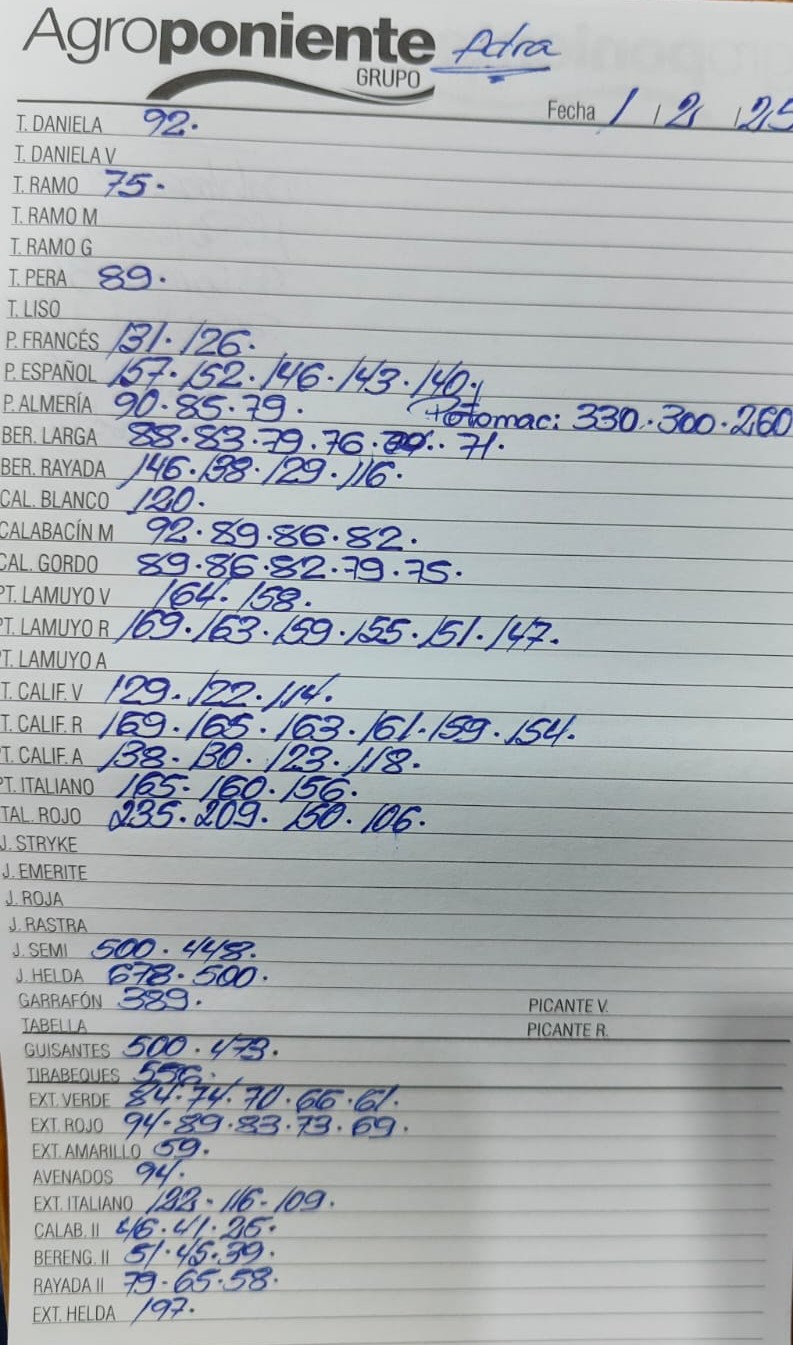 Agroponiente Adra
GRUPO
Fecha 1 / 2 / 25
T. DANIELA 92.
T. DANELA V
T. RAMO 75.
T. RAMO M
T. RAMO G
T. PERA 89.
T. LISO
P. FRANCÉS 131. 126.
P. ESPAÑOL 157. 152. 146. 143. 140.
P. ALMERÍA 90. 85. 79. Potomac: 330. 300. 260
BER. LARGA 88. 83. 79. 76. 71.
BER. RAYADA 146. 138. 129. 116.
CAL. BLANCO 120.
CALABACÍN M 92. 89. 86. 82.
CAL. GORDO 89. 86. 82. 79. 75.
PT. LAMUYO V 164. 158.
PT. LAMUYO R 169. 163. 159. 155. 151. 147.
PT. LAMUYO A
T. CALIF. V 129. 122. 114.
T. CALIF. R 169. 165. 163. 161. 159. 154.
T. CALIF. A 138. 130. 123. 118.
PT. ITALIANO 165. 160. 156.
TAL. ROJO 235. 209. 150. 106.
J. STRYKE
J. EMERITE
J. ROJA
J. RASTRA
J. SEMI 500. 448.
J. HELDA 678. 500.
GARRAFÓN 389. PICANTE V.
TABELLA PICANTE R.
GUISANTES 500. 473.
TIRABEQUES 556.
EXT. VERDE 84. 74. 70. 66. 61.
EXT. ROJO 94. 89. 83. 73. 69.
EXT. AMARILLO 59.
AVENADOS 94.
EXT. ITALIANO 122. 116. 109.
CALAB. II 46. 41. 26.
BERENG. II 51. 45. 39.
RAYADA II 79. 65. 58.
EXT. HELDA 197.